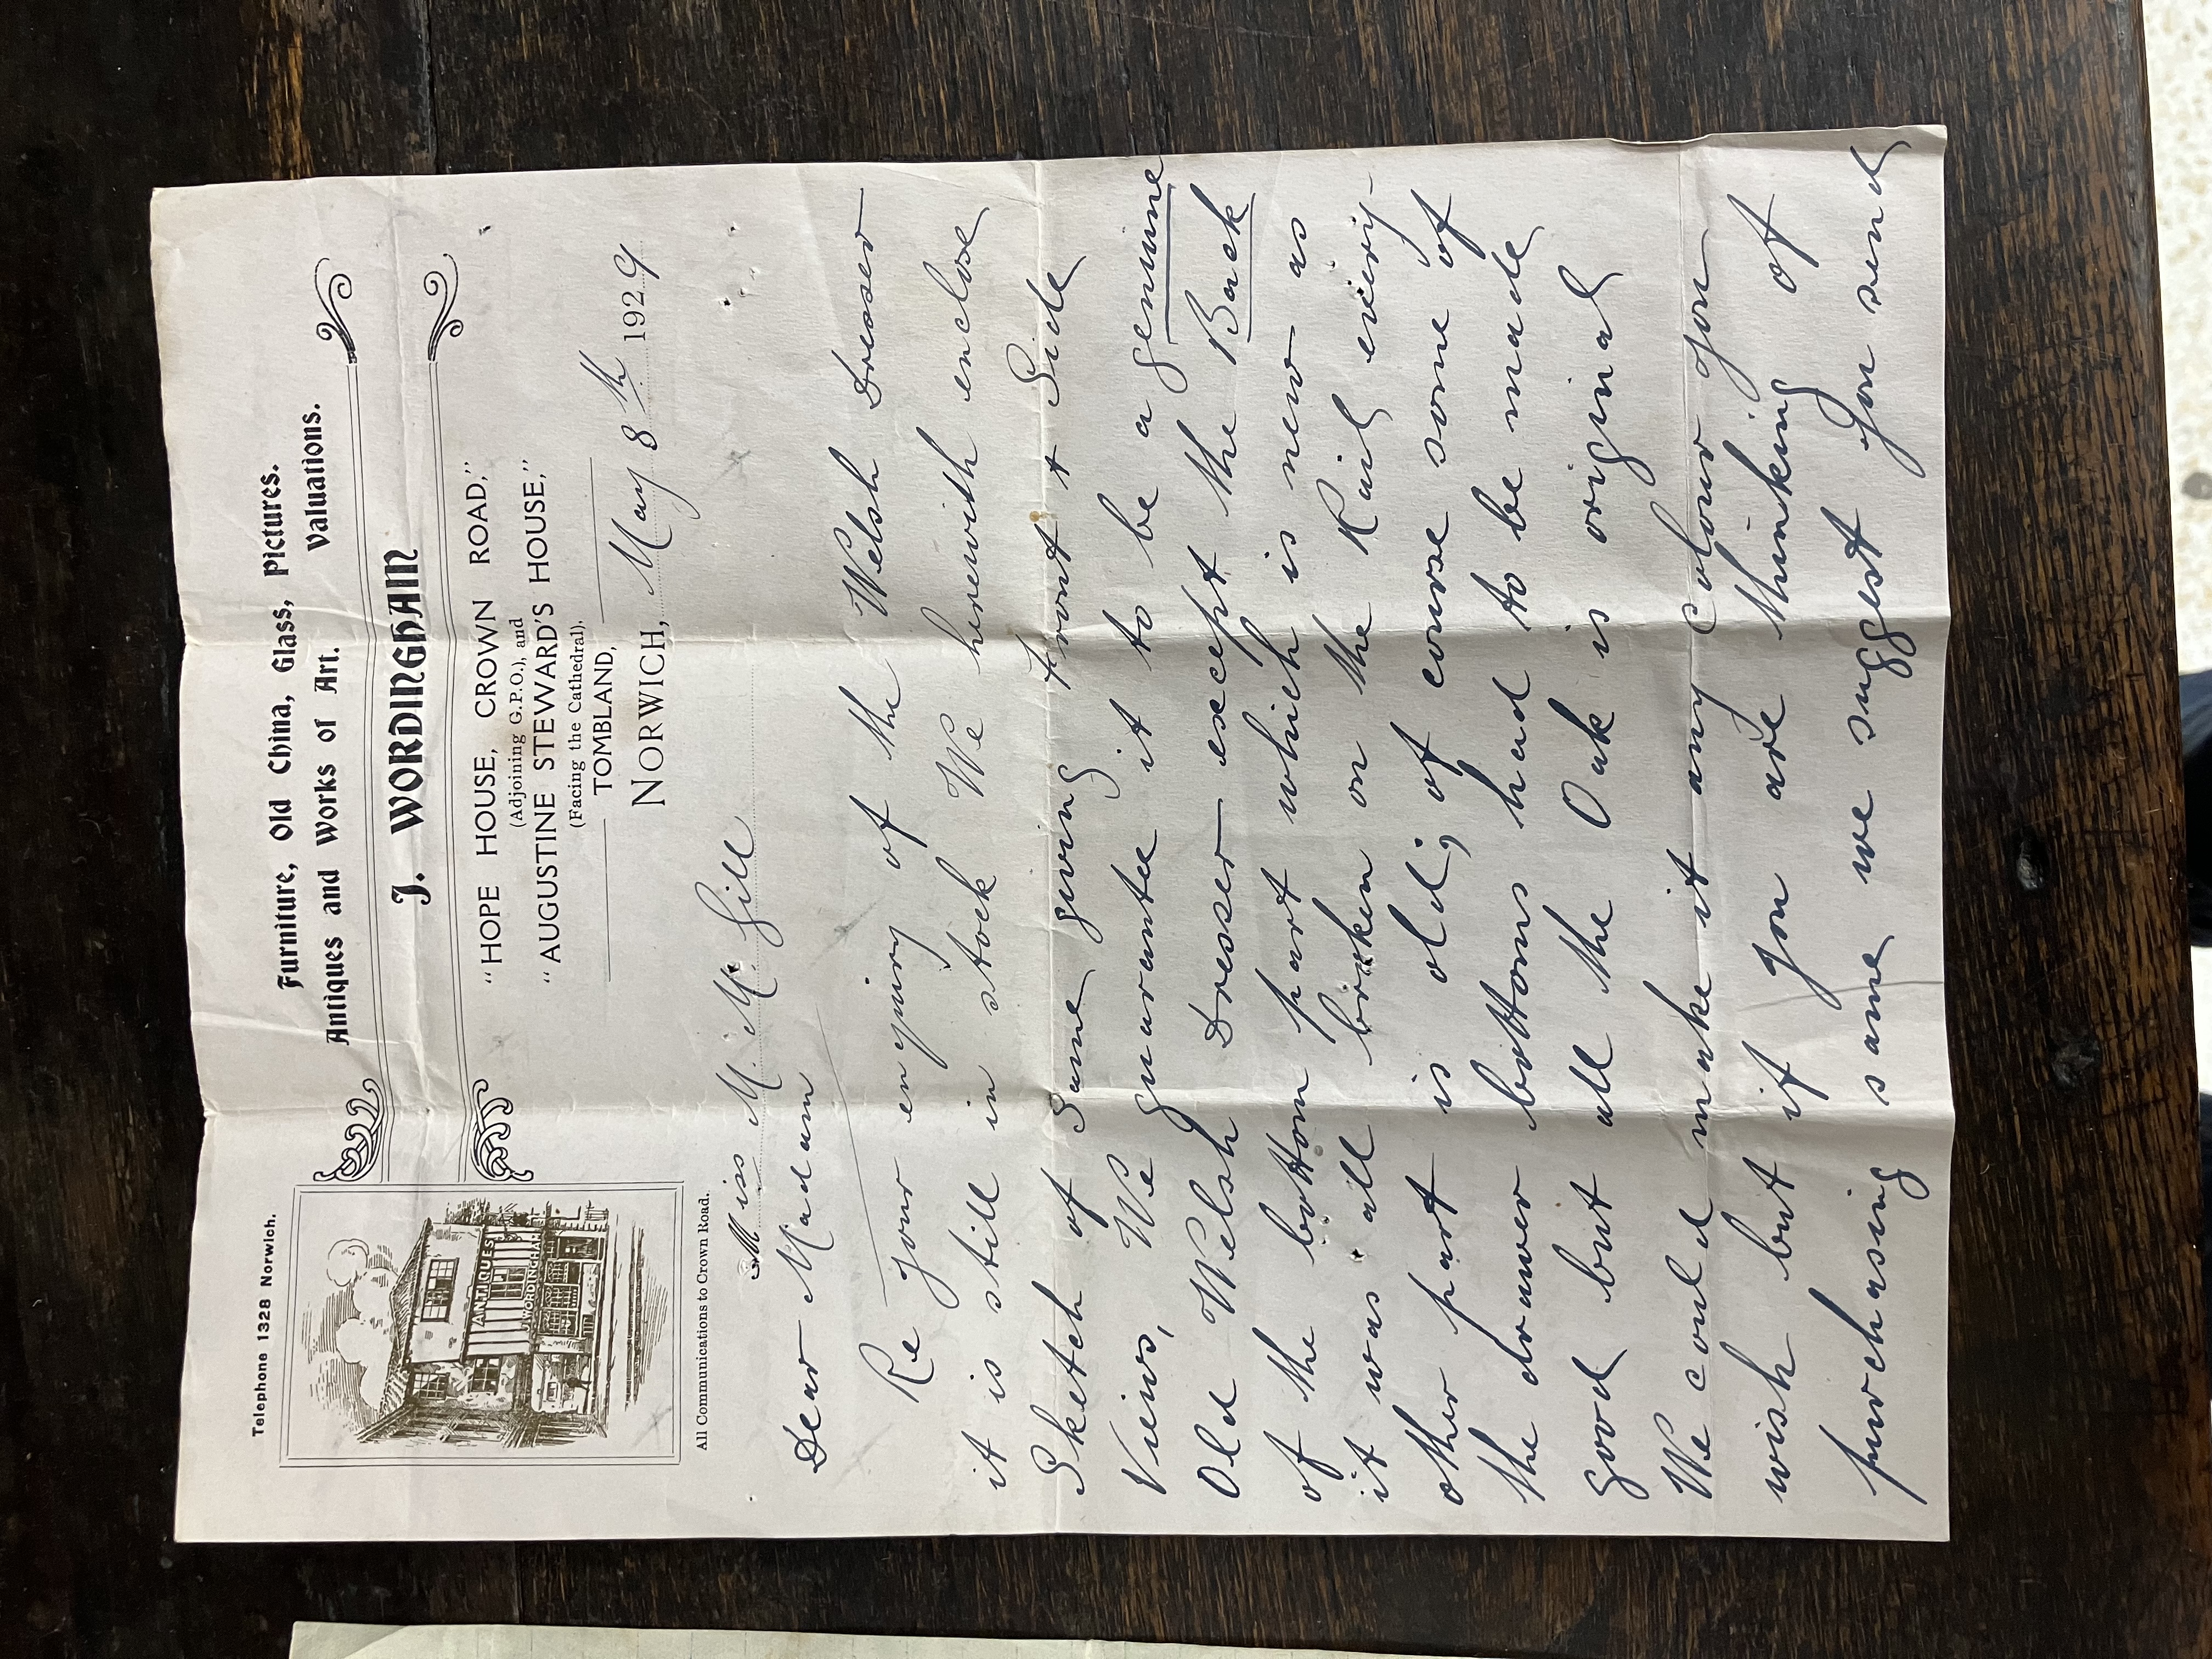 Telephone 1328 Norwich.
Furniture, Old China, Glass, Pictures.
Antiques and Works of Art. Valuations.
J. WORDINGHAM
"HOPE HOUSE, CROWN ROAD,"
(Adjoining G.P.O.), and
"AUGUSTINE STEWARD'S HOUSE,"
(Facing the Cathedral),
TOMBLAND,
NORWICH, May 8th 1929
ANTIQUES
WORDINGHAM
All Communications to Crown Road.
Miss M. Mc Gill
Dear Madam
Re your enquiry of the Welsh Dresser
it is still in stock We herewith enclose
Sketch of same giving Front + Side
Views, We guarantee it to be a genuine
Old Welsh Dresser except the Back
of the bottom part which is new as
it was all broken on the Rail every-
other part is old; of course some of
the drawer bottoms had to be made
good but all the Oak is original
We could make it any colour you
wish but if you are thinking of
purchasing same we suggest you send